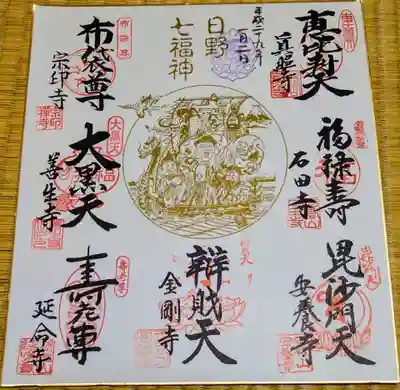 恵比寿天
真照寺
平成二九年
一月二日
日野
七福神
布袋尊
布袋尊
宗印寺
福禄寿
石田寺
大黒天
大黒天
善生寺
毘沙門天
安養寺
辯財天
金剛寺
寿老尊
延命寺